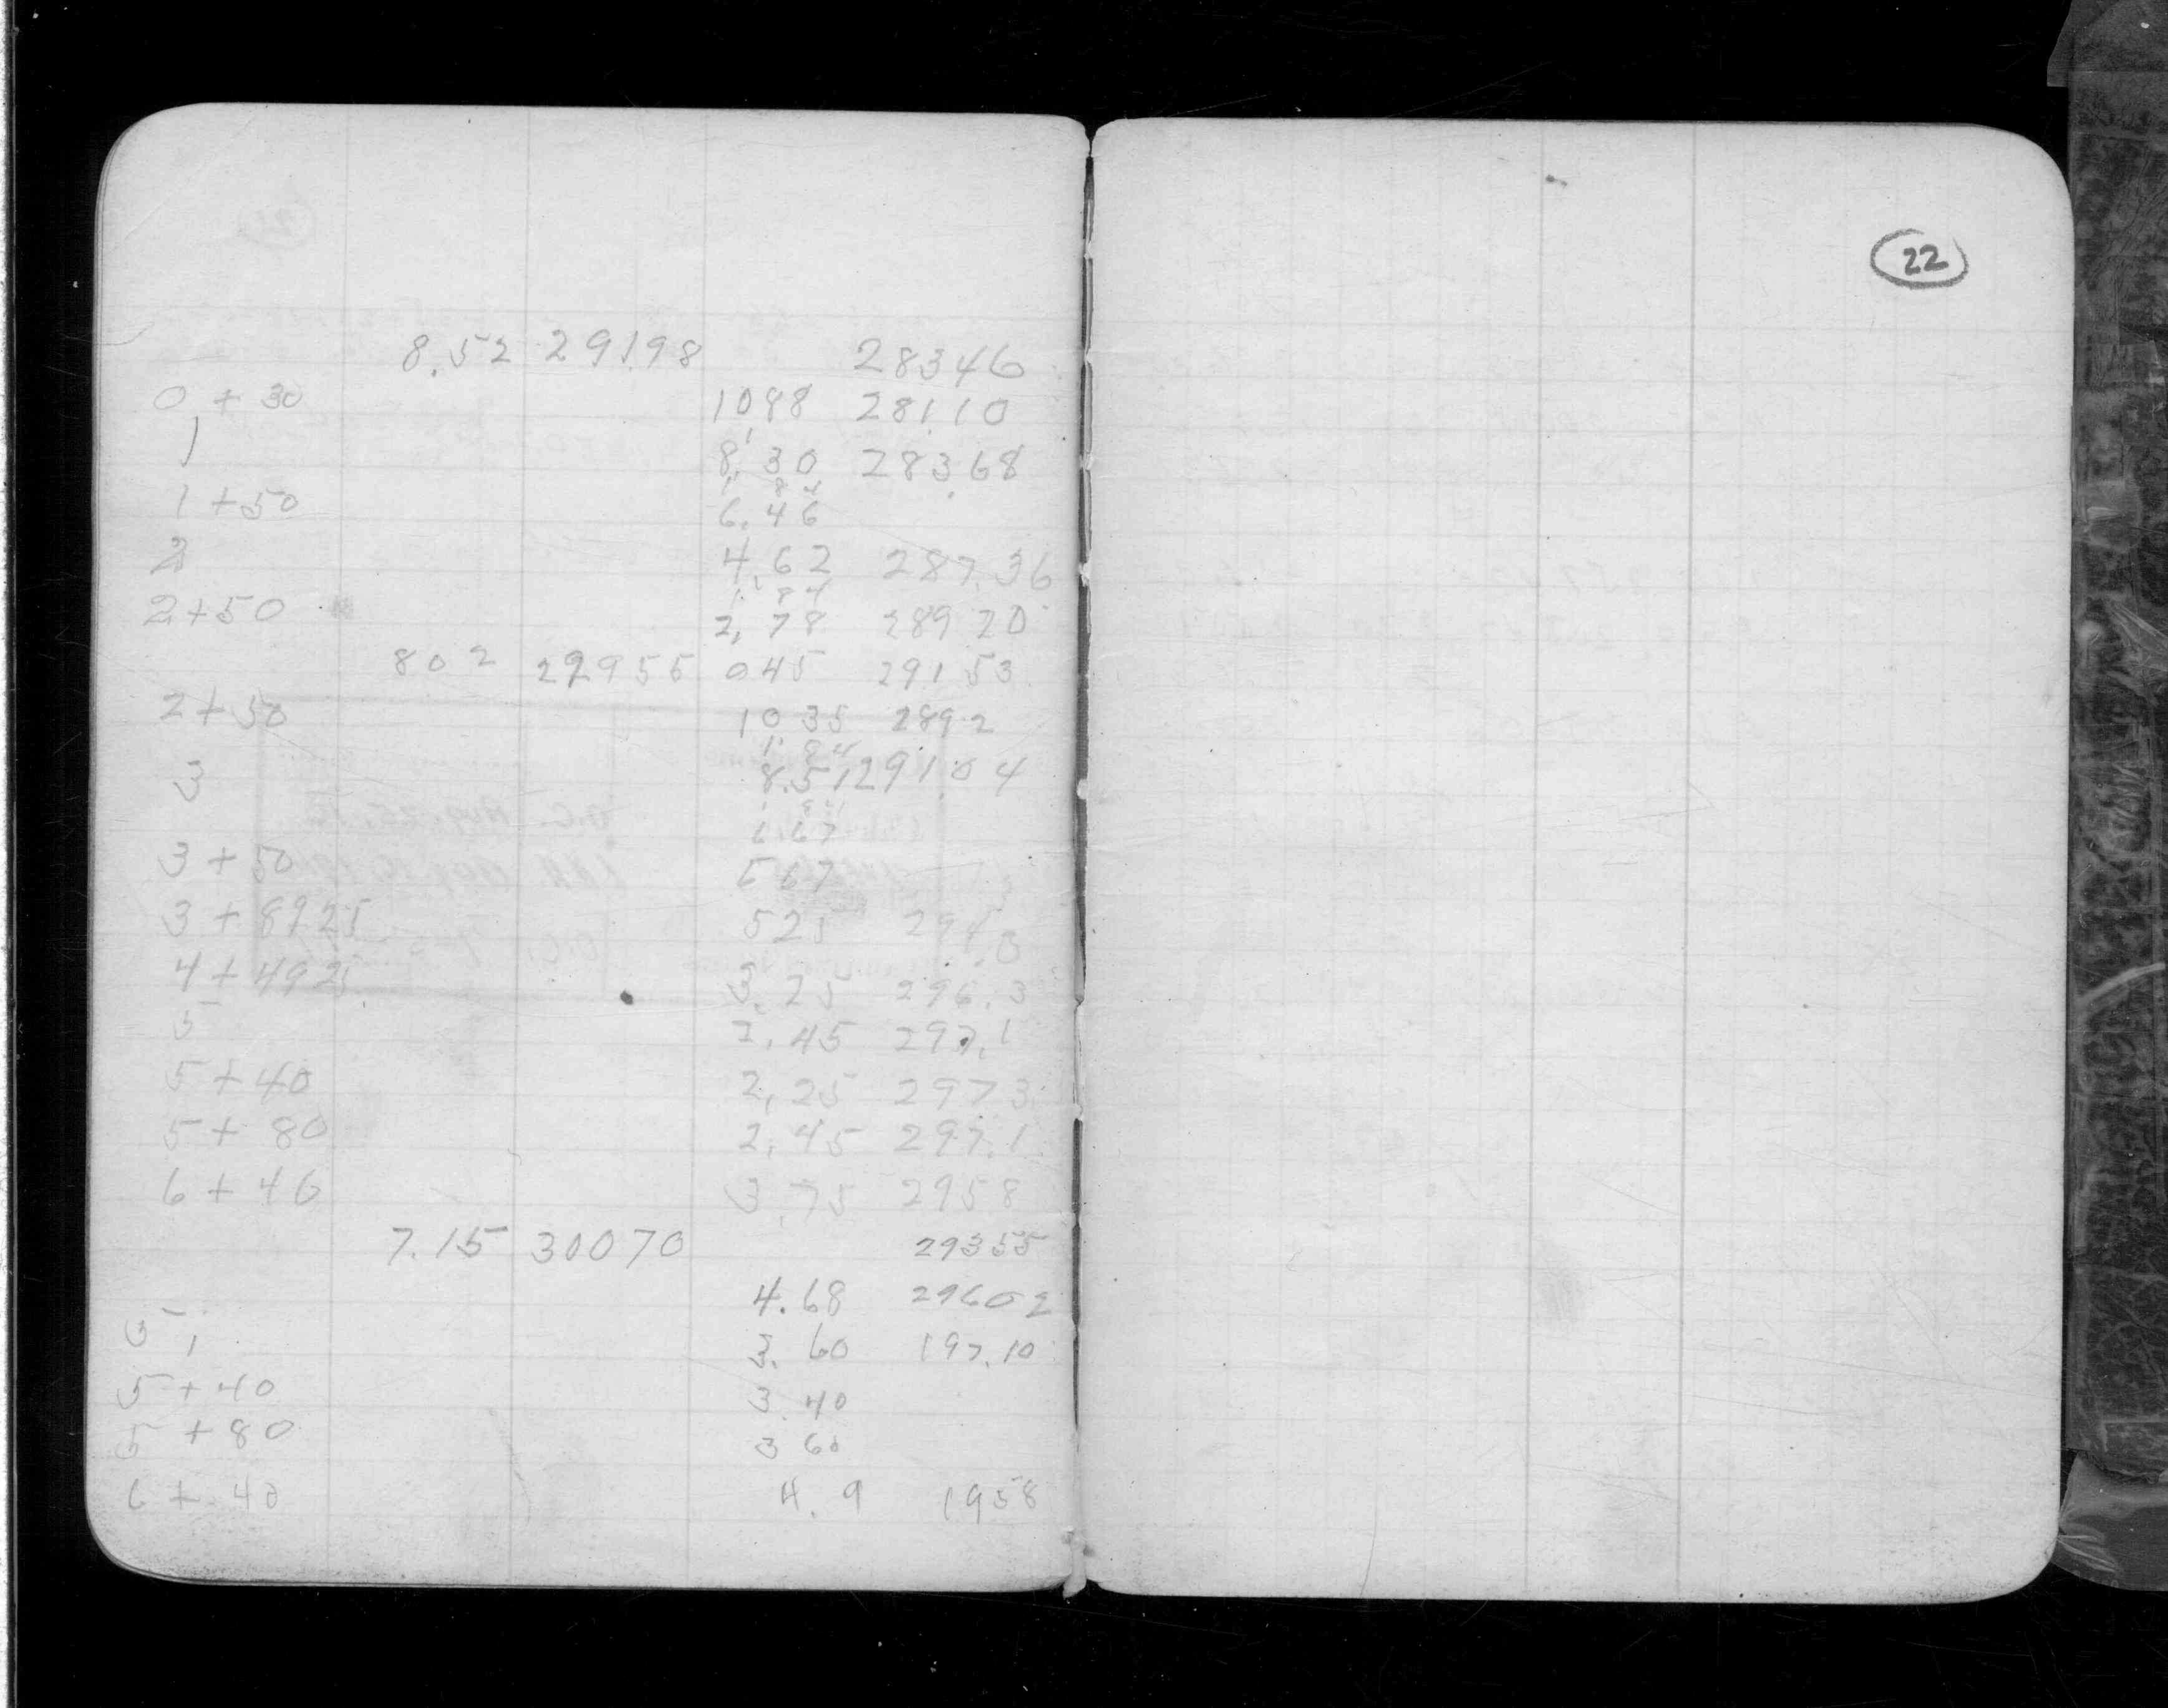 8.52 291.98 28346
0 + 30 10,88 281.10
1 8,30 283.68
1 84
1 + 50 6.46
2 4,62 287.36
1. 84
2 + 50 2,78 289 20
8 0 2 29955 045 291 53
2 + 50 10 35 289 2
1. 84
3 8.51 291.04
1 84
6 67
3 + 50 5 67
3 + 8925 525 294.3
4 + 4925 3.25 296.3
5 2.45 297.1
5 + 40 2,25 297 3
5 + 80 2,45 297.1
6 + 40 3.75 295 8
7.15 30070 29355
4.68 29602
5 3. 60 197.10
5 + 40 3.40
5 + 80 3 60
6 + 40 4.9 1958
22